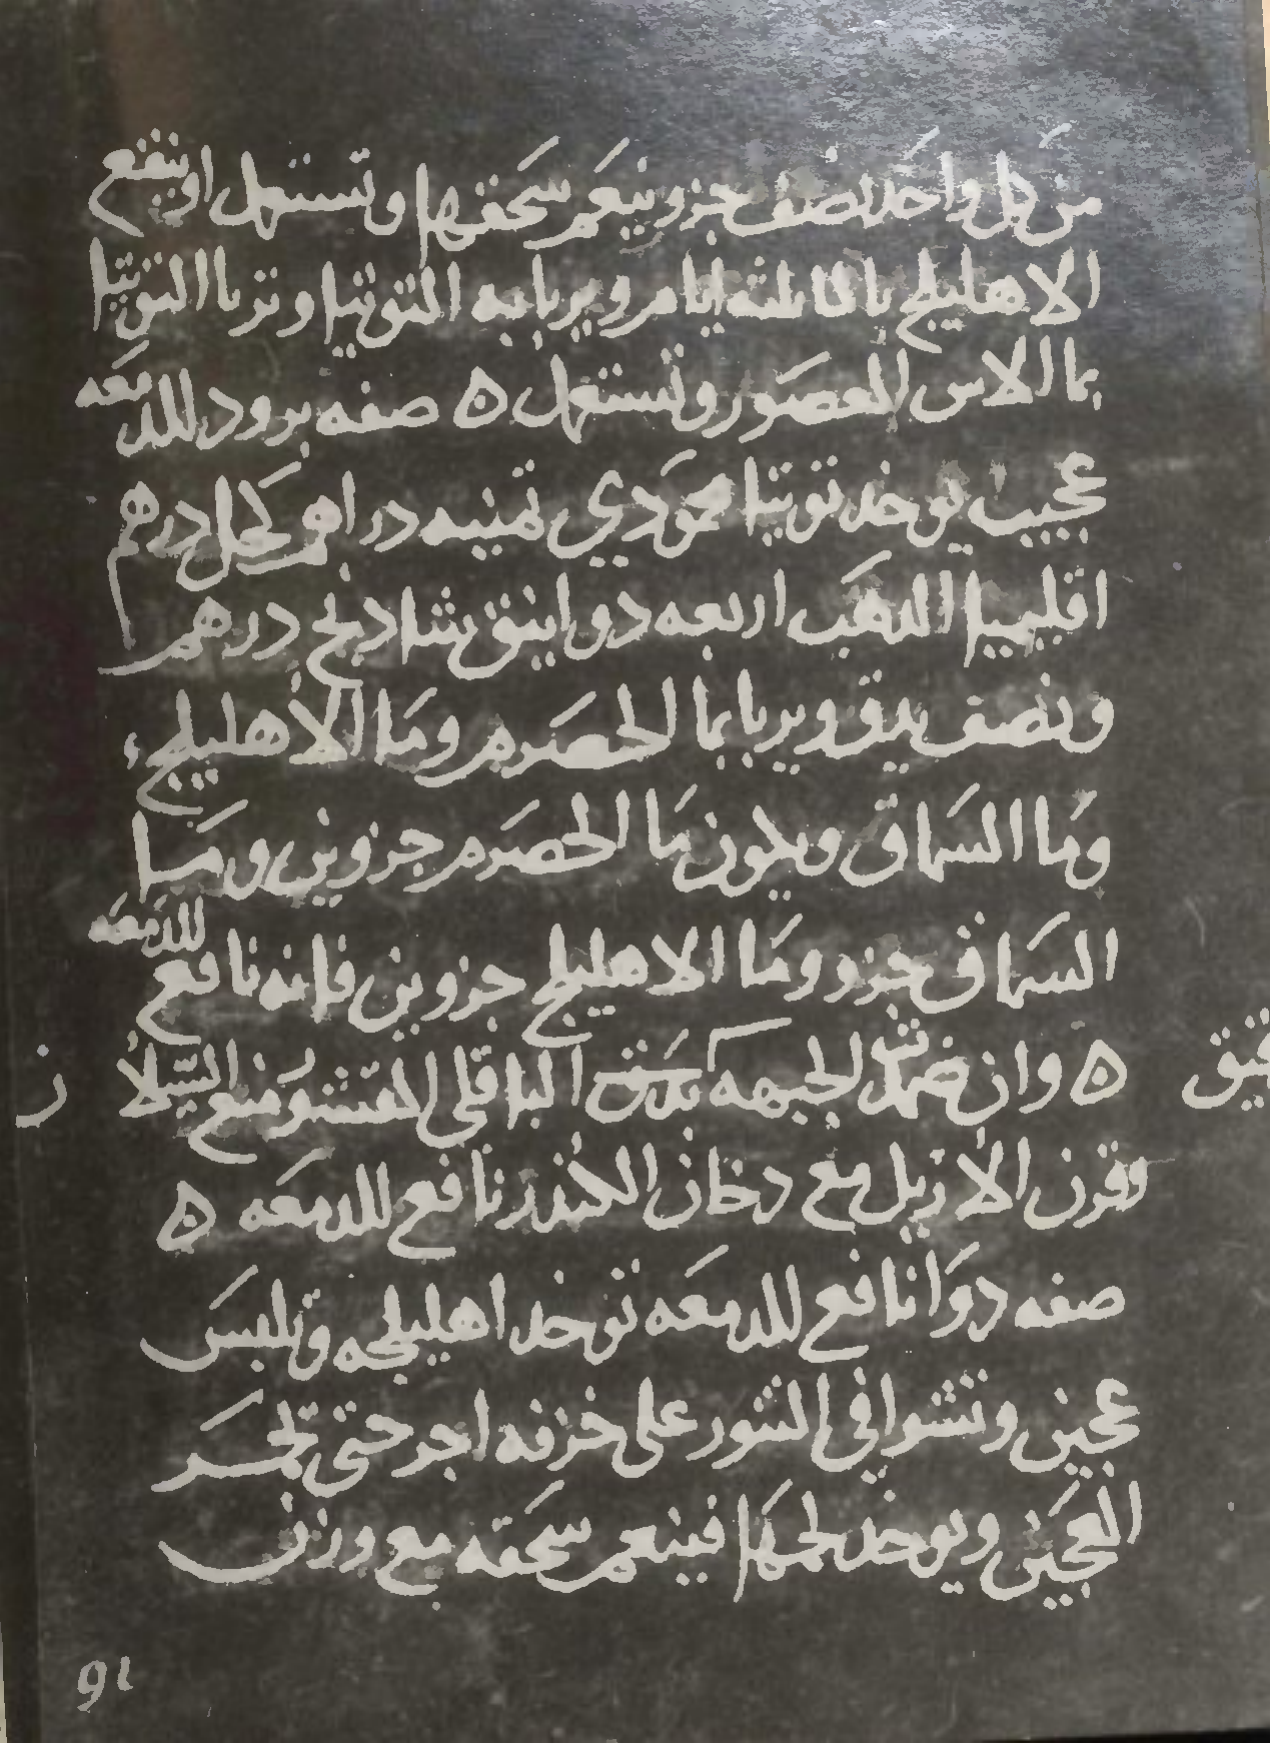 من كل واحد نصف جزو ينعم سحقها وتستعمل او ينقع
الاهليلج بالما ثلثه ايام ويربا به التوتيا وتربا التوتيا
بما الاس المعصور وتستعمل ه صفه برود للدمعه
عجيب توخد توتيا محمودي ثمنيه دراهم كحل درهم
اقليميا الدهب اربعه دوانيق شادنج درهم
ونصف يدق ويربا بما الحصرم وما الاهليلج
وما السماق ويكون ما الحصرم جزوين وما
السماق جزو وما الاهليلج جزوين فانه نافع للدمعه
ه وان ضمد الجبهه بدقيق الباقلى المقشر ومنع السيلان
وقرن الايل مع دخان الكندر نافع للدمعه ه
صفه دوا نافع للدمعه توخد اهليلجه وتلبس
عجين وتشوا في التنور على خزفه اجر حتى تحمر
العجين ويوخد لحمها فينعم سحقه مع وزن